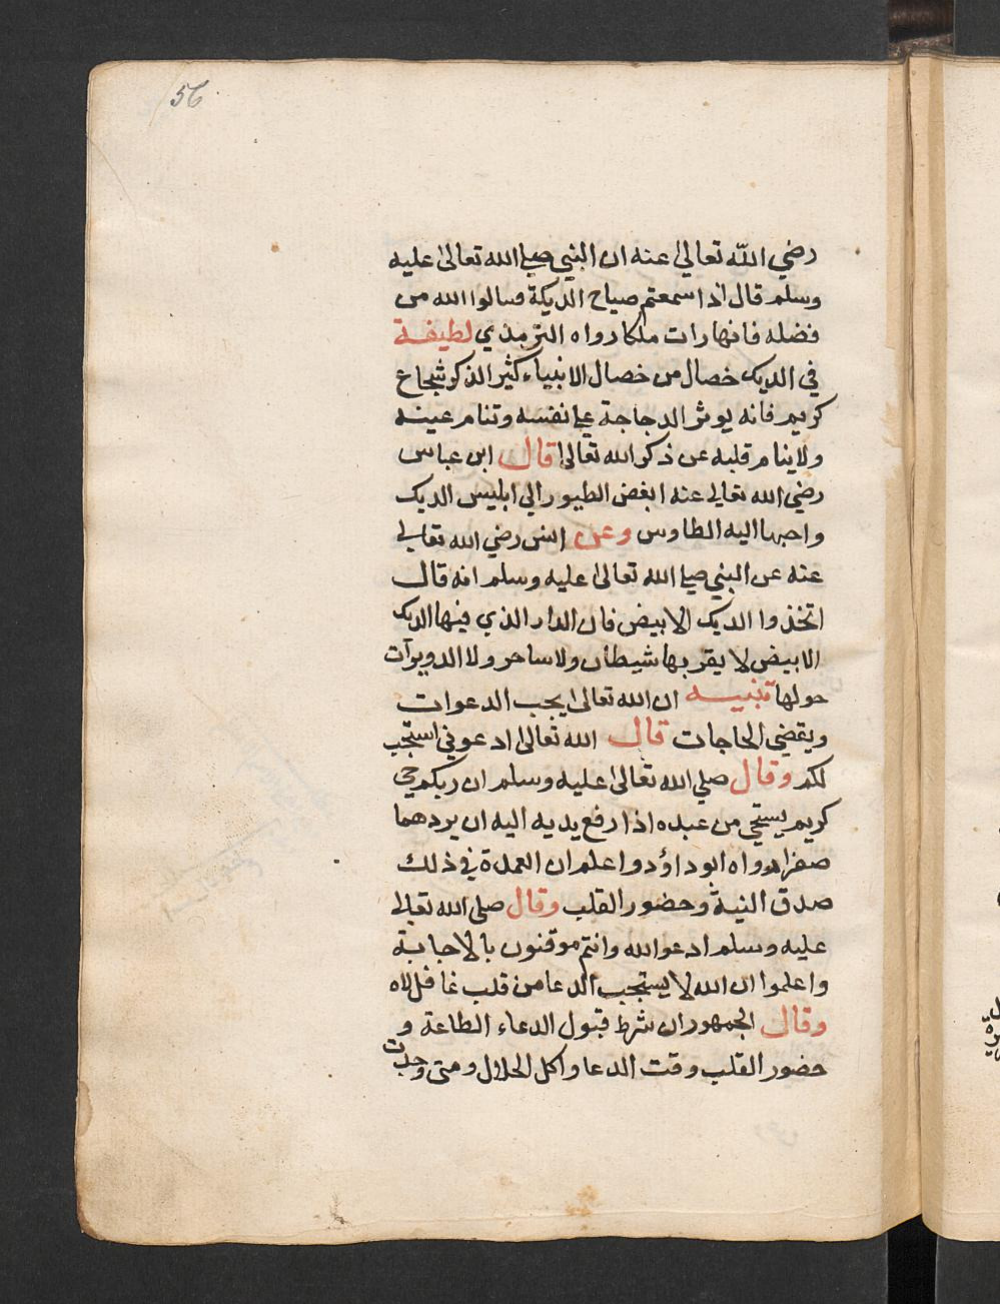 56
رضي الله تعالى عنه ان النبي صلى الله تعالى عليه
وسلم قال اذا سمعتم صياح الديكة فسالوا الله من
فضله فانها رات ملكا رواه الترمذي لطيفة
في الديك خصال من خصال الانبياء كثير الذكر شجاع
كريم فانه يوثر الدجاجة على نفسه وتنام عينه
ولاينام قلبه عن ذكر الله تعالى قال ابن عباس
رضي الله تعالى عنه ابغض الطيور الى ابليس الديك
واحبها اليه الطاوس وعن انس رضي الله تعالى
عنه عن النبي صلى الله تعالى عليه وسلم انه قال
اتخذوا الديك الابيض فان الدار الذي فيها الديك
الابيض لا يقربها شيطان ولا ساحر ولا الدويرات
حولها تنبيه ان الله تعالى يجب الدعوات
ويقضي الحاجات قال الله تعالى ادعوني استجب
لكم وقال صلى الله تعالى عليه وسلم ان ربكم حي
كريم يستحي من عبده اذا رفع يديه اليه ان يردهما
صفرا رواه ابو داؤد واعلم ان العمدة في ذلك
صدق النية وحضور القلب وقال صلى الله تعالى
عليه وسلم ادعوا الله وانتم موقنون بالاجابة
واعلموا ان الله لا يستجب الدعا من قلب غافل لاه
وقال الجمهور ان شرط قبول الدعاء الطاعة و
حضور القلب وقت الدعا واكل الحلال ومتى وجدت